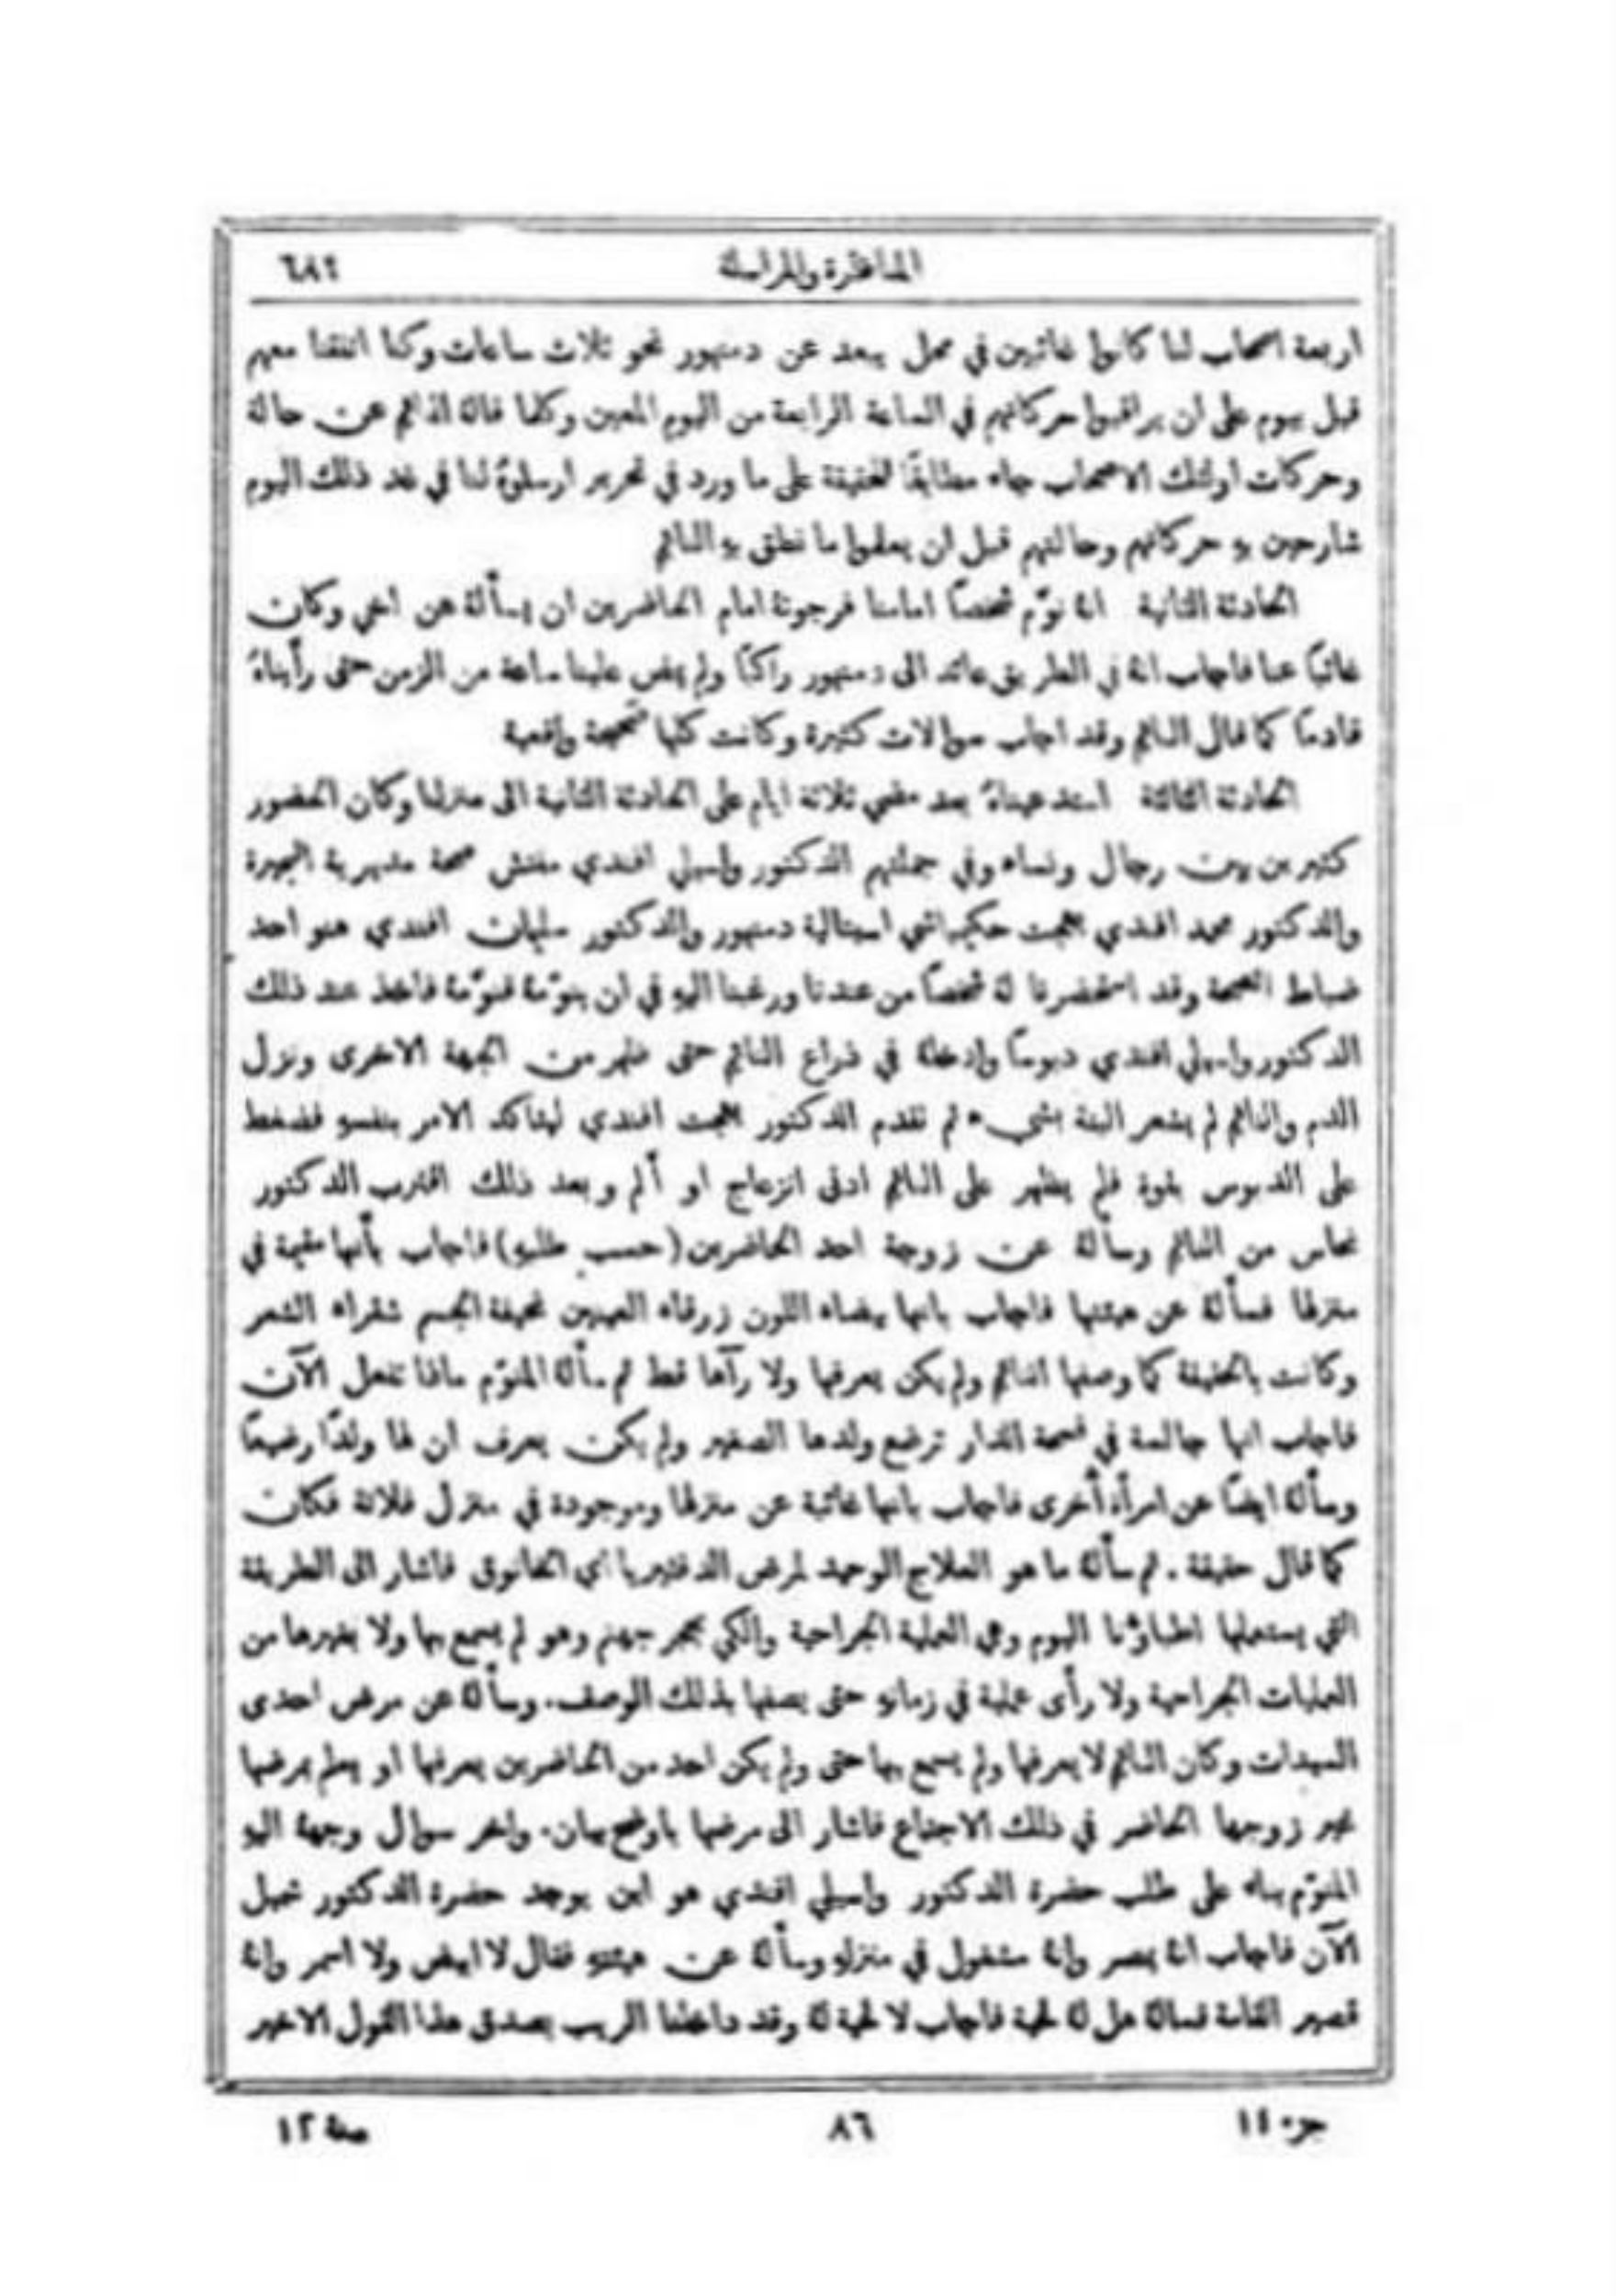 المناظرة والمراسلة ٦٨٩
اربعة اصحاب لنا كانوا غائبين في محل يبعد عن دمنهور نحو ثلاث ساعات وكنا اتفقنا معهم
قبل بيوم على ان يراقبوا حركاتهم في الساعة الرابعة من اليوم المعين وكلما قالهُ النائم عن حالة
وحركات اولئك الاصحاب جاء مطابقًا للحقيقة على ما ورد في تحرير ارسلوهُ لنا في غد ذلك اليوم
شارحين بهِ حركاتهم وحالتهم قبل ان يعلموا ما نطق بهِ النائم
الحادثة الثانية انهُ نوّم شخصًا امامنا فرجوتهُ امام الحاضرين ان يسألهُ عن اخي وكان
غائبًا عنا فاجاب انهُ في الطريق عائد الى دمنهور راكبًا ولم يمض علينا ساعة من الزمن حتى رأيناهُ
قادمًا كما قال النائم وقد اجاب سوالات كثيرة وكانت كلها صحيحة واقعية
الحادثة الثالثة استدعيناهُ بعد مضي ثلاثة ايام على الحادثة الثانية الى منزلنا وكان الحضور
كثيرين بين رجال ونساء وفي جملتهم الدكتور واسيلي افندي مفتش صحة مديرية البحيرة
والدكتور محمد افندي بهجت حكيمباشي اسبتالية دمنهور والدكتور سليمان افندي هنو احد
ضباط الصحة وقد استحضرنا لهُ شخصًا من عندنا ورغبنا اليهِ في ان ينوّمهُ فنوّمهُ فاخذ عند ذلك
الدكتور واسيلي افندي دبوسًا وادخلهُ في ذراع النائم حتى ظهر من الجهة الاخرى ونزل
الدم والنائم لم يشعر البتة بشيء ثم تقدم الدكتور بهجت افندي ليتاكد الامر بنفسهِ فضغط
على الدبوس بقوة فلم يظهر على النائم ادنى انزعاج او ألم وبعد ذلك اقترب الدكتور
نحاس من النائم وسألهُ عن زوجة احد الحاضرين (حسب طلبهِ) فاجاب بأنها مقيمة في
منزلها فسألهُ عن هيئتها فاجاب بانها بيضاء اللون زرقاء العينين نحيفة الجسم شقراء الشعر
وكانت بالحقيقة كما وصفها النائم ولم يكن يعرفها ولا رآها قط ثم سألهُ المنوّم ماذا تفعل الآن
فاجاب انها جالسة في فسحة الدار ترضع ولدها الصغير ولم يكن يعرف ان لها ولدًا رضيعًا
وسألهُ ايضًا عن امرأة أخرى فاجاب بانها غائبة عن منزلها وموجودة في منزل فلانة فكان
كما قال حقيقة. ثم سألهُ ما هو العلاج الوحيد لمرض الدفتيريا اي الخانوق فاشار الى الطريقة
التي يستعملها اطباؤنا اليوم وهي العملية الجراحية والكي بحجر جهنم وهو لم يسمع بها ولا بغيرها من
العمليات الجراحية ولا رأى عملية في زمانهِ حتى يصفها بذلك الوصف. وسألهُ عن مرض احدى
السيدات وكان النائم لا يعرفها ولم يسمع بها حتى ولم يكن احد من الحاضرين يعرفها او يعلم بمرضها
غير زوجها الحاضر في ذلك الاجتماع فاشار الى مرضها باوضح بيان. واخر سوال وجههُ اليهِ
المنوّم بناء على طلب حضرة الدكتور واسيلي افندي هو اين يوجد حضرة الدكتور شميل
الآن فاجاب انهُ بمصر وانهُ مشغول في منزلهِ وسألهُ عن هيئتهِ فقال لا ابيض ولا اسمر وانهُ
قصير القامة فسالهُ هل لهُ لحية فاجاب لا لحية لهُ وقد داخلنا الريب بصدق هذا القول الاخير
جزء ١١ ٨٦ سنة ١٢